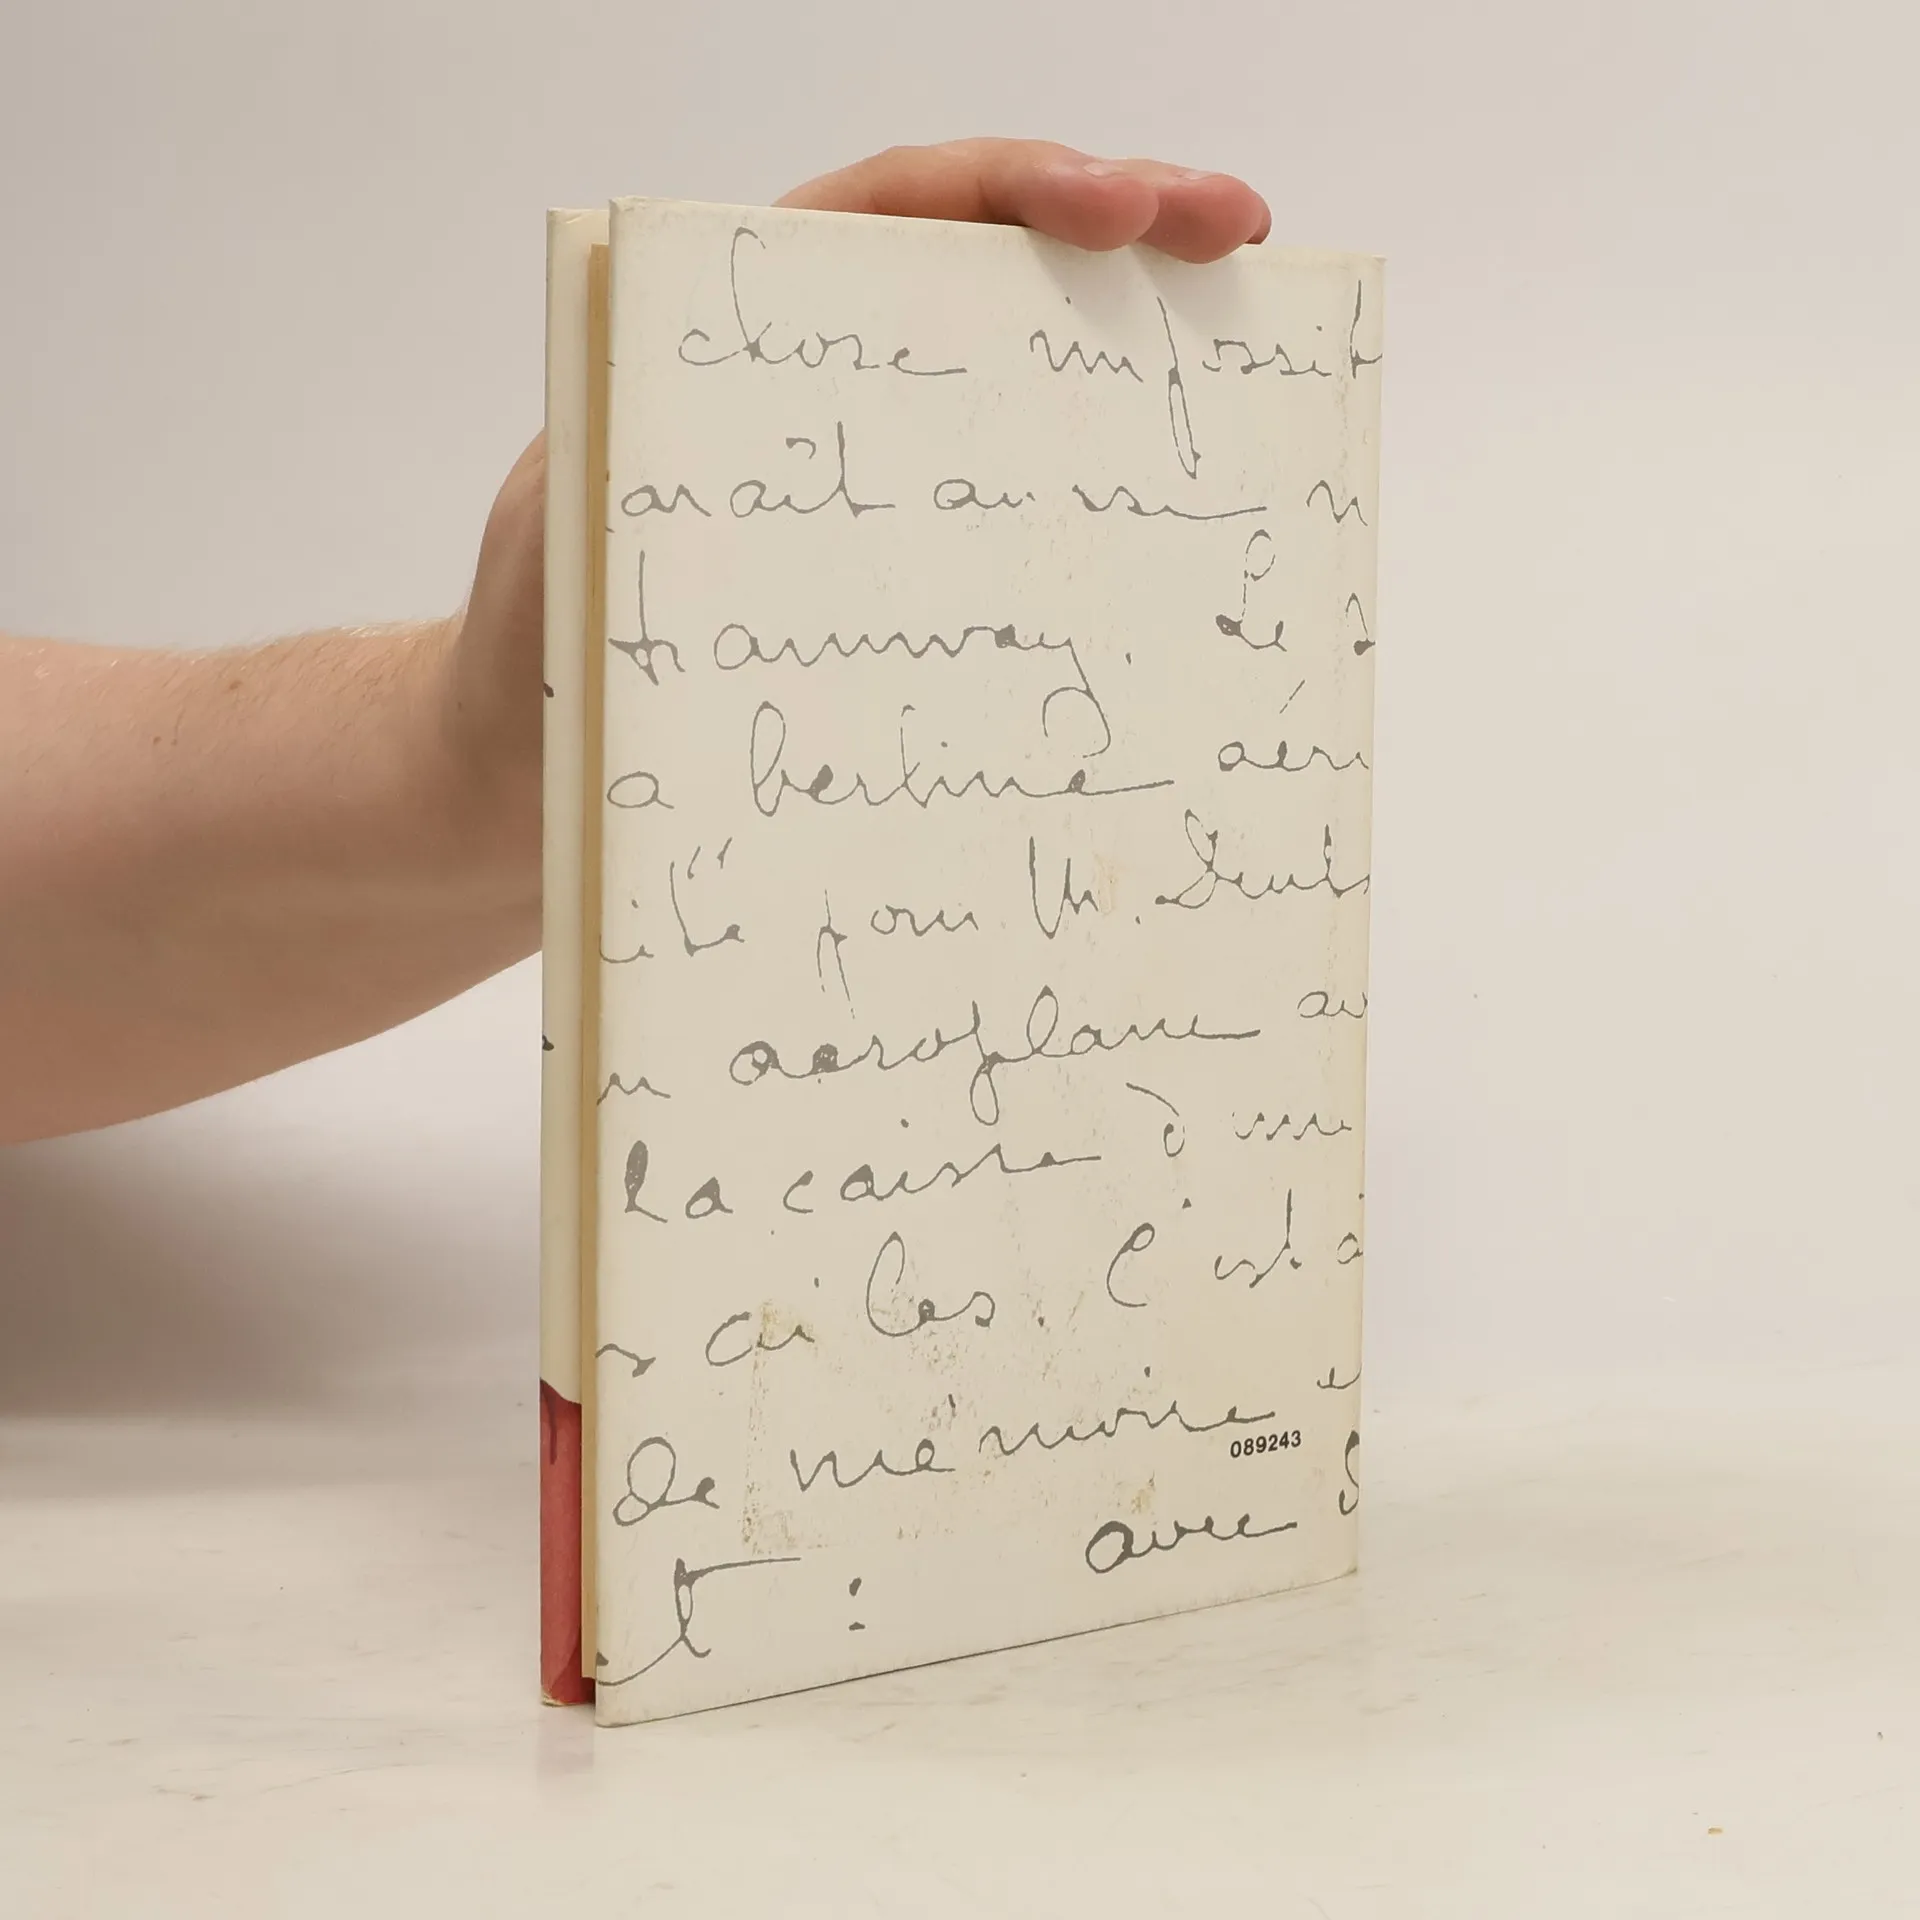 chose impossib
araît aussi n
tramway. Le s
a berline aéri
ite pour M. Deuts
n aeroplane av
la caisse d'une
s ailes. C'est a
de mémoire e
089243
t : avec